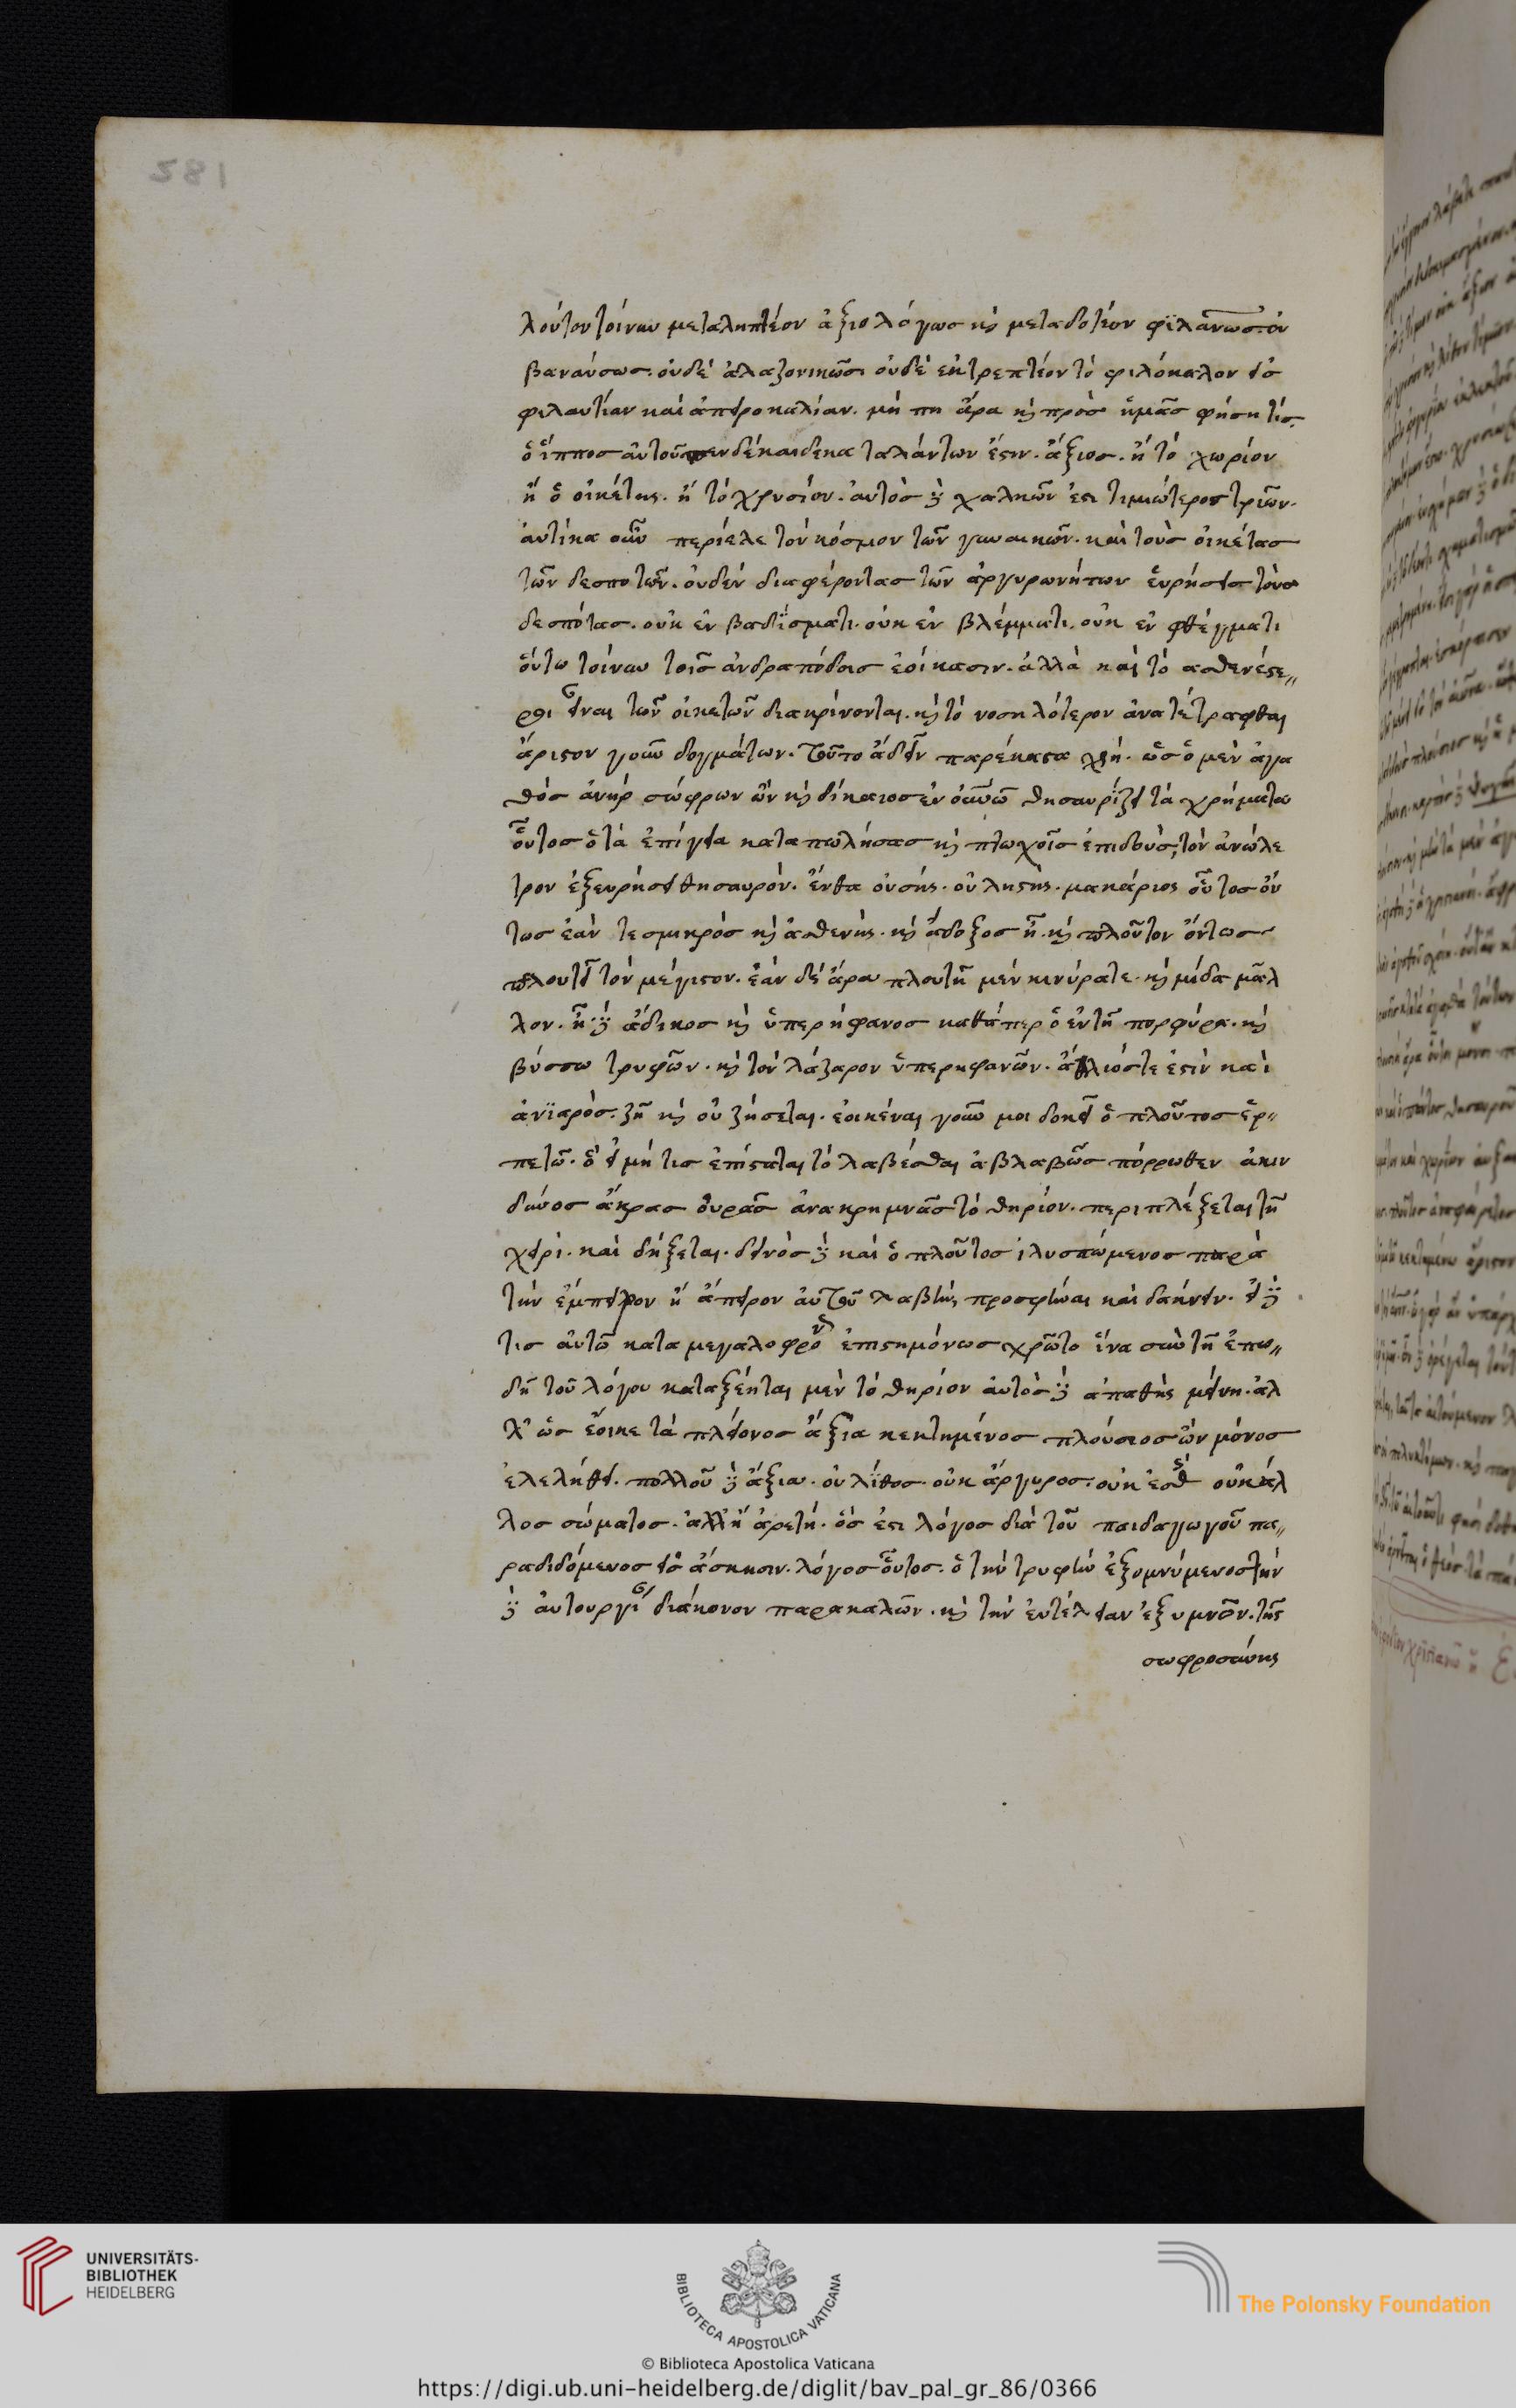 281
λούτου τοίνυν μεταληπτέον ἀξιολόγως καὶ μεταδοτέον φϊλανως οὐ
βαναύσως. οὐδὲ ἀλαζονικῶς. οὐδὲ ἐκτρεπτέον τὸ φιλόκαλον εἰς
φιλαυτίαν καὶ ἀπειροκαλίαν. μή πη ἄρα καὶ πρὸς ἡμᾶς φήσῃ τίς.
ὁ ἵππος αὐτοῦ πεντεκαίδεκα ταλάντων ἐστιν. ἄξιος. ἢ τὸ χωρίον
ἢ ὁ οἰκέτης. ἢ τὸ χρυσίον. αὐτὸς δὲ χαλκῶν ἐστι τιμιώτερος τριῶν.
αὐτίκα οὖν περίελε τὸν κόσμον τῶν γυναικῶν. καὶ τοὺς οἰκέτας
τῶν δεσποτῶν. οὐδὲν διαφέροντας τῶν ἀργυρωνήτων εὑρήσεις τοὺς
δεσπότας. οὐκ ἐν βαδΐσματι. οὐκ ἐν βλέμματι. οὐκ ἐν φθέγματι
οὕτω τοίνυν τοῖς ἀνδραπόδοις ἐοίκασιν. ἀλλὰ καὶ τὸ ασθενέστε„
ροι εἶναι τῶν οἰκετῶν διακρίνονται. καὶ τὸ νοσηλότερον ἀνατέτραφθαι
ἄριστον γοῦν δογμάτων. τοῦτο ἄδειν παρέκαστα χρή. ὡς ὁ μὲν ἀγα
θὸς ἀνὴρ σώφρων ὢν καὶ δίκαιος ἐν οὐνῶ θησαυρΐζει τὰ χρήματα
οὗτος ὁ τὰ ἐπίγεια καταπωλήσας καὶ πτωχοῖς ἐπιδοὺς, τὸν ἀνώλε
τρον ἐξευρήσει θησαυρὸν. ἔνθα οὐ σής. οὐ ληστής. μακάριος οὗτος ὄν
τως ἐάν τε σμικρὸς καὶ ἀσθενὴς. καὶ ἄδοξος ἦ. καὶ πλοῦτον ὄντως
πλουτεῖ τὸν μέγιστον. ἐὰν δὲ ἄρα πλουτῆ μὲν κινύρατε. καὶ μίδα μᾶλ
λον. ἦ δὲ ἄδικος καὶ ὑπερήφανος καθάπερ ὁ ἐν τῆ πορφύρα. καὶ
βύσσω τρυφῶν. καὶ τὸν λάζαρον ὑπερηφανῶν. ἄθλιός τε ἐστὶν καὶ
ἀνϊαρὸς. ζῆ καὶ οὐ ζήσεται. ἐοικέναι γοῦν μοι δοκεῖ ὁ πλοῦτος ἑρ„
πετῶ. ὃ εἰ μή τις ἐπίσταται τὸ λαβέσθαι ἀβλαβῶς πόρρωθεν ἀκιν
δύνος ἄκρας οὐρᾶς ἀνακρημνᾶς τὸ θηρίον. περιπλέξεται τῆ
χειρὶ. καὶ δήξεται. δεινὸς δὲ καὶ ὁ πλοῦτος ἰλυσπώμενος παρὰ
τὴν ἔμπειρον ἢ ἄπειρον αὐτοῦ λαβὴν, προσφῦναι καὶ δακεῖν. εἰ δὲ
τις αὐτῶ καταμεγαλοφρον ἐπιστημόνως χρῶτο ἵνα σὺν τῆ ἐπω„
δῆ τοῦ λόγου καταξέηται μὲν τὸ θηρίον αὐτὸς δὲ ἀπαθὴς μείνη. ἀλ
λ' ὡς ἔοικε τὰ πλείονος ἄξΐα κεκτημένος πλούσιος ὢν μόνος
ἐλελήθει. πολλοῦ δὲ ἄξια. οὐ λΐθος. οὐκ ἄργυρος. οὐκ ἐσθής οὐ κάλ
λος σώματος. ἀλλ' ἡ ἀρετή. ὅς ἐστι λόγος διὰ τοῦ παιδαγωγοῦ πα„
ραδιδόμενος εἰς ἄσκησιν. λόγος οὗτος. ὁ τὴν τρυφὴν ἐξομνύμενος τὴν
δὲ αὐτουργί διάκονον παρακαλῶν. καὶ τὴν ἐυτέλειαν ἐξυμνῶν. τῆς
σωφροσύνης
UNIVERSITÄTS-
BIBLIOTHEK
HEIDELBERG
BIBLIOTECA APOSTOLICA VATICANA
The Polonsky Foundation
© Biblioteca Apostolica Vaticana
https://digi.ub.uni-heidelberg.de/diglit/bav_pal_gr_86/0366